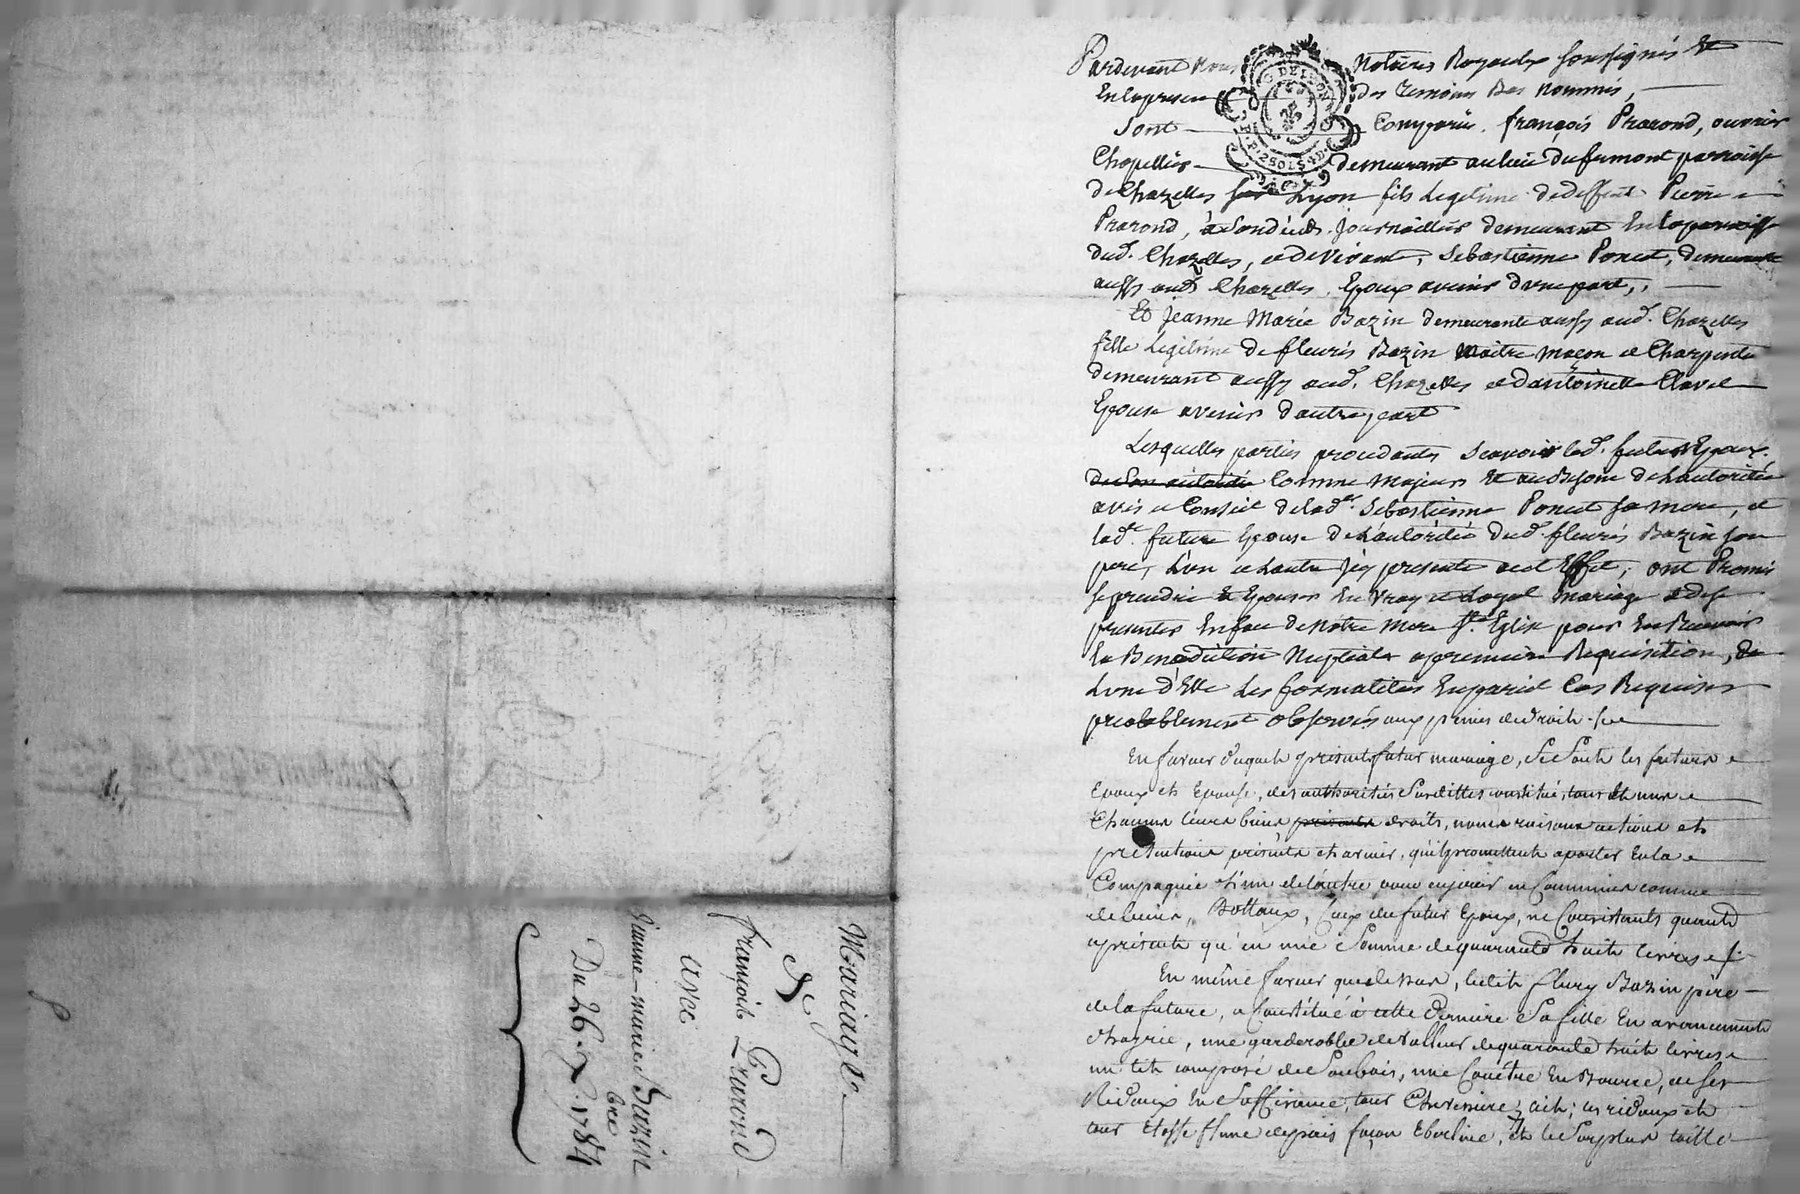 Mariage
De
françois Prarond
avec
Jeanne-marie Bazin
Du 26. 7.bre 1784
Pardevant Nous Notaires Royaulx soussignés Et
En la presence des temoins Bas nommés,
Sont Comparus françois Prarond, ouvrier
Chapellier demeurant au lieu du fumont parroisse
de Chazelles sur Lyon fils Legitime de deffunt Pierre
Prarond, a son deceds journaillier demeurant En la parroisse
dud. Chazelles, et de vivante, Sebastienne Poncet, demeurante
aussy aud. Chazelles, Epoux avenir d'une part,
Et jeanne Marie Bazin demeurante aussy aud. Chazelles
fille Legitime de fleury Bazin Maitre maçon et Charpentier
demeurant aussy aud. Chazelles et d'antoinette Clavel
Epouse avenir d'autre part
Lesquelles parties procedantes Scavoir led. futur Epoux
de son autorité Comme Majeur Et au Besoin de L'autoritée
avis et Conseil de lad. Sebastienne Poncet sa mere, et
lad. future Epouse de L'autoritée dud. fleury Bazin son
pere, L'un et Lautre icy presents a cet Effet, ont Promis
se prendre et Epouser En vray et Loyal Mariage et de se
presenter En face de Notre Mere Ste. Eglise pour En Recevoir
la Benediction Nuptiale a premiere Requisition, de
L'une d'Elle Les formalités En pareil Cas Requises
prealablement observés aux peines de droit
En faveur duquel present futur mariage, Se Sont les futurs
Epoux et Epouse, des authorités Susdittes constitué, tous et un
Chacuns leurs biens presents droits, noms raisons actions et
pretentions presents et avenir, qu'ils promettent aporter En la
Compagnie l'un de l'autre pour en jouir en Commun comme
de biens Dottaux, Ceux du futur Epoux, ne Consistants quand
a present qu'en une Somme de quarante huit livres
En même faveur que dessus, ledit fleury Bazin père
de la future, a Constitué à cette derniere Sa fille En avancement
d'hoyrie, une garderobbe de valleur de quarante huit livres
un lit composé de Son bois, une Couêtre En Bourre, de Ses
Ridaux En Suffisance,